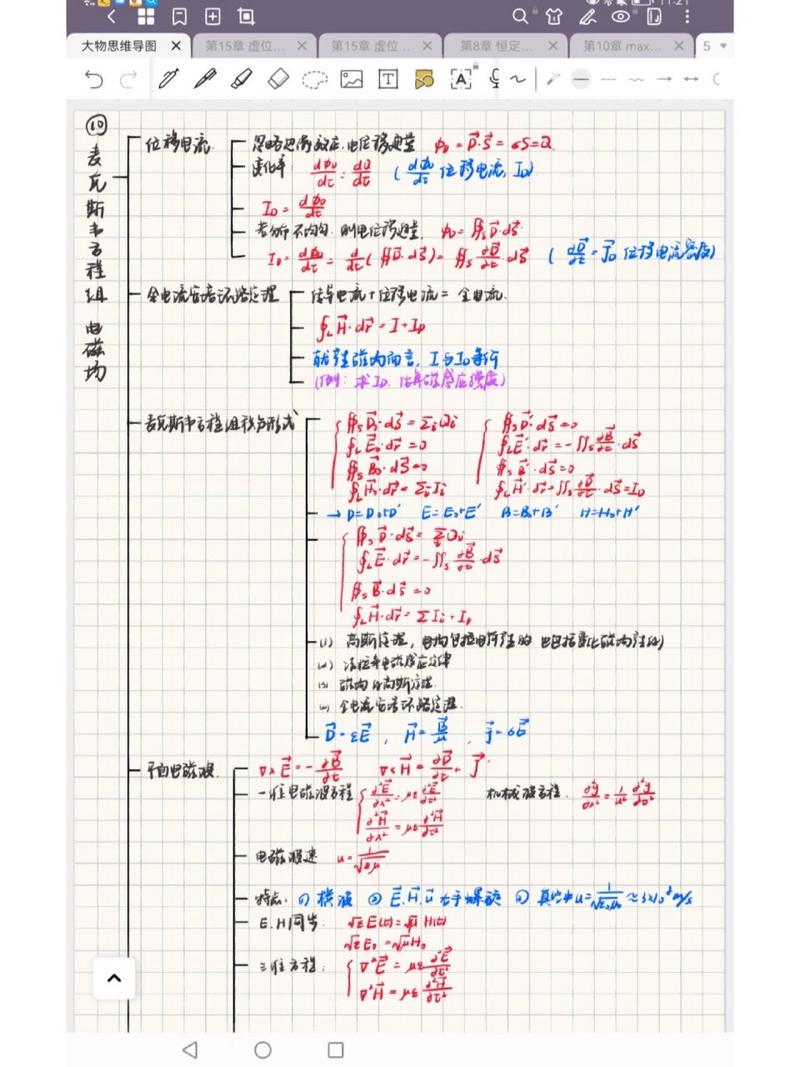 11:21
大物思维导图 ×
第15章 虚位... ×
第15章 虚位... ×
第8章 恒定... ×
第10章 max... ×
5
⑩ 麦克斯韦方程组 电磁场
位移电流
忽略边缘效应,电位移通量 φ_D = D⃗·S⃗ = σS = Q
变化率 dφ_D/dt = dQ/dt (dφ_D/dt 位移电流, I_D)
I_D = dφ_D/dt
若分布不均匀,则电位移通量 φ_D = ∯_S D⃗·dS⃗
I_D = dφ_D/dt = d/dt(∯D⃗·dS⃗) = ∯_S ∂D⃗/∂t·dS⃗ (∂D⃗/∂t = J⃗_D 位移电流密度)
全电流安培环路定理
传导电流+位移电流=全电流
∮_L H⃗·dr⃗ = I + I_D
就产生磁场而言, I与I_D等价
(例:求I_D, 磁感应强度)
麦克斯韦方程组积分形式
∯_S D⃗₀·dS⃗ = Σ_i Q_i ∯_S D⃗'·dS⃗ = 0
∮_L E⃗₀·dr⃗ = 0 ∮_L E⃗'·dr⃗ = -∬_S ∂B⃗/∂t·dS⃗
∯_S B⃗₀·dS⃗ = 0 ∯_S B⃗'·dS⃗ = 0
∮_L H⃗₀·dr⃗ = Σ_i I_i ∮_L H⃗'·dr⃗ = ∬_S ∂D⃗/∂t·dS⃗ = I_D
→ D = D₀+D' E = E₀+E' B = B₀+B' H = H₀+H'
∯_S D⃗·dS⃗ = Σ_i Q_i
∮_L E⃗·dr⃗ = -∬_S ∂B⃗/∂t·dS⃗
∯_S B⃗·dS⃗ = 0
∮_L H⃗·dr⃗ = ΣI_i + I_D
(1) 高斯定理, 电场包括电荷产生的 也包括变化磁场产生的)
(2) 法拉第电磁感应定律
(3) 磁场的高斯定理
(4) 全电流安培环路定理
D⃗ = εE⃗, H⃗ = B⃗/μ, j⃗ = σE⃗
平面电磁波
∇×E⃗ = -∂B⃗/∂t ∇×H⃗ = ∂D⃗/∂t + J⃗
一维电磁波方程 ∂²E⃗/∂x² = με ∂²E⃗/∂t² 机械波方程. ∂²y/∂x² = 1/u² ∂²y/∂t²
∂²H⃗/∂x² = με ∂²H⃗/∂t²
电磁波速 u = 1/√(εμ)
特点. ① 横波 ② E⃗.H⃗.u⃗ 右手螺旋 ③ 真空中u = 1/√(ε₀μ₀) ≈ 3×10⁸ m/s
E.H同步. √ε E(t) = √μ H(t)
√ε E₀ = √μ H₀
三维方程: ∇²E⃗ = με ∂²E⃗/∂t²
∇²H⃗ = με ∂²H⃗/∂t²